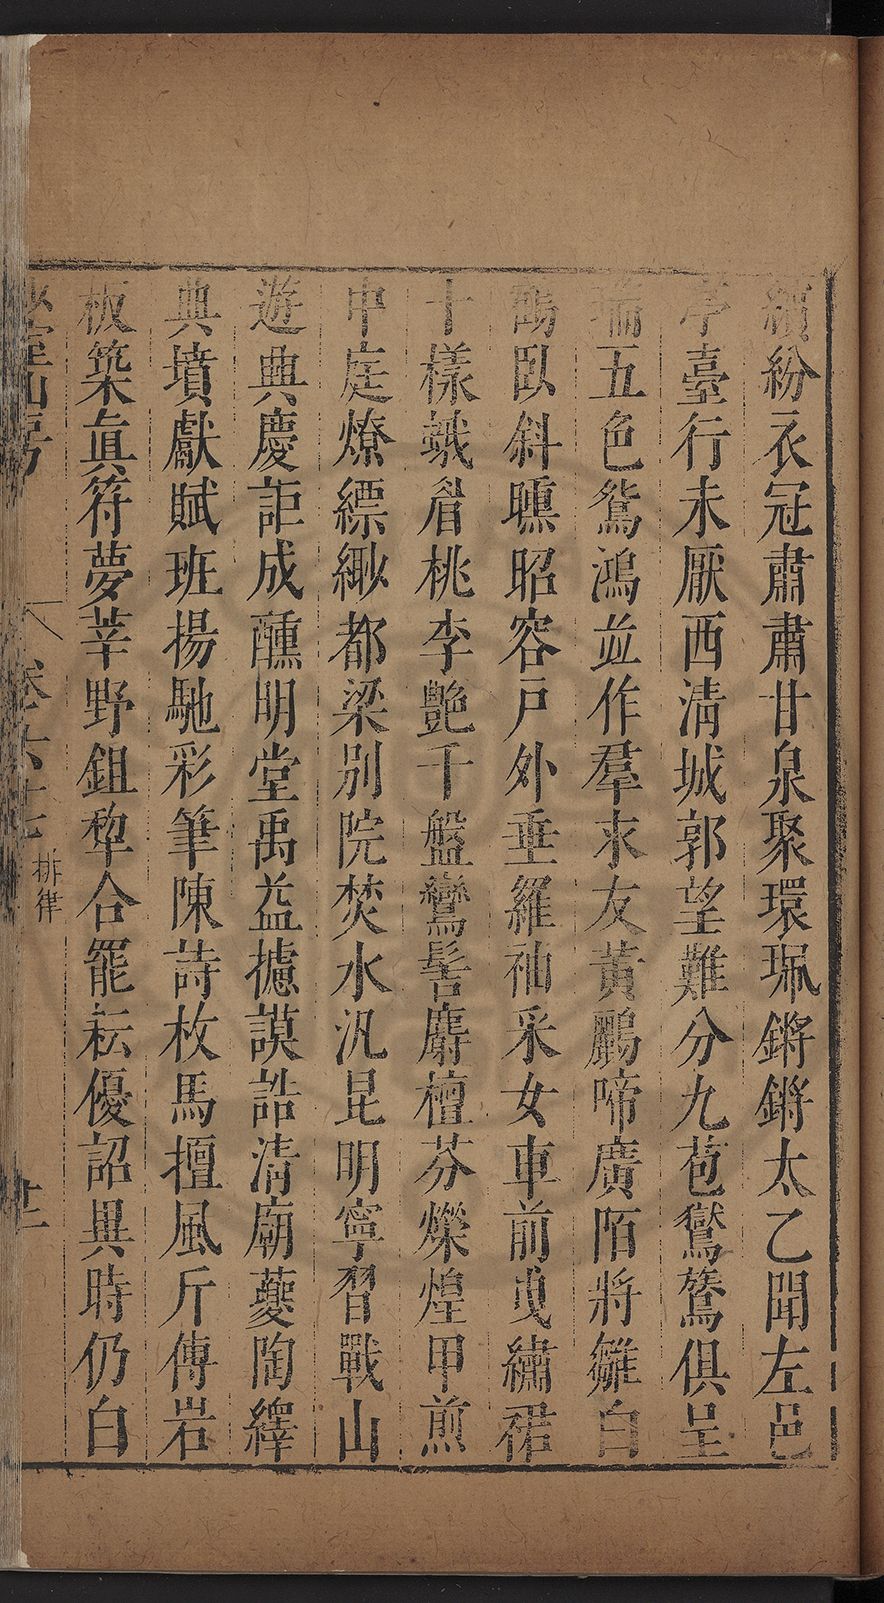 繽紛衣冠肅肅甘泉聚環珮鏘鏘太乙聞左邑
亭臺行未厭西清城郭望難分九苞鸑鷟俱呈
瑞五色鴛鴻並作羣求友黃鸝啼廣陌將雛白
鷴臥斜曛昭容戶外垂羅袖采女車前曳繡裙
十樣蛾眉桃李艶千盤鸞髻麝檀芬爍煌甲煎
中庭燎縹緲都梁別院焚水汎昆明寧習戰山
遊典慶詎成醺明堂禹益攄謨誥清廟夔陶繹
典墳獻賦班揚馳彩筆陳詩枚馬擅風斤傳岩
板築眞符夢莘野鉏犂合罷耘優詔異時仍白
山房 卷六十七 排律 廿二